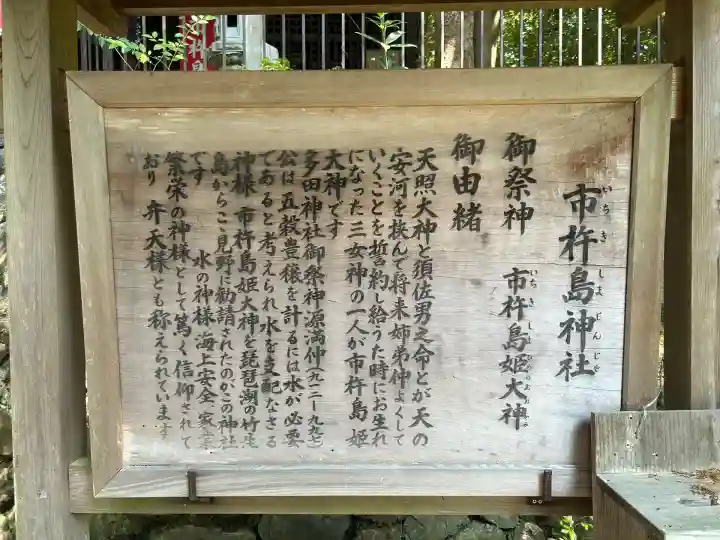 市杵島神社
いちきしまじんじゃ
御祭神　市杵島姫大神
御由緒
天照大神と須佐男之命とが天の
安河を挟んで将来姉弟仲よくして
いくことを誓約し給うた時にお生れ
になった三女神の一人が市杵島姫
大神です
多田神社御祭神源満仲(九一二ー九九七)
公は五穀豊穣を計るには水が必要
であると考えられ水を支配なさる
神様　市杵島姫大神を琵琶湖の竹生
島からこゝ見野に勧請されたのがこの神社
です　水の神様　海上安全　家業
繁栄の神様として篤く信仰されて
おり　弁天様とも称えられています